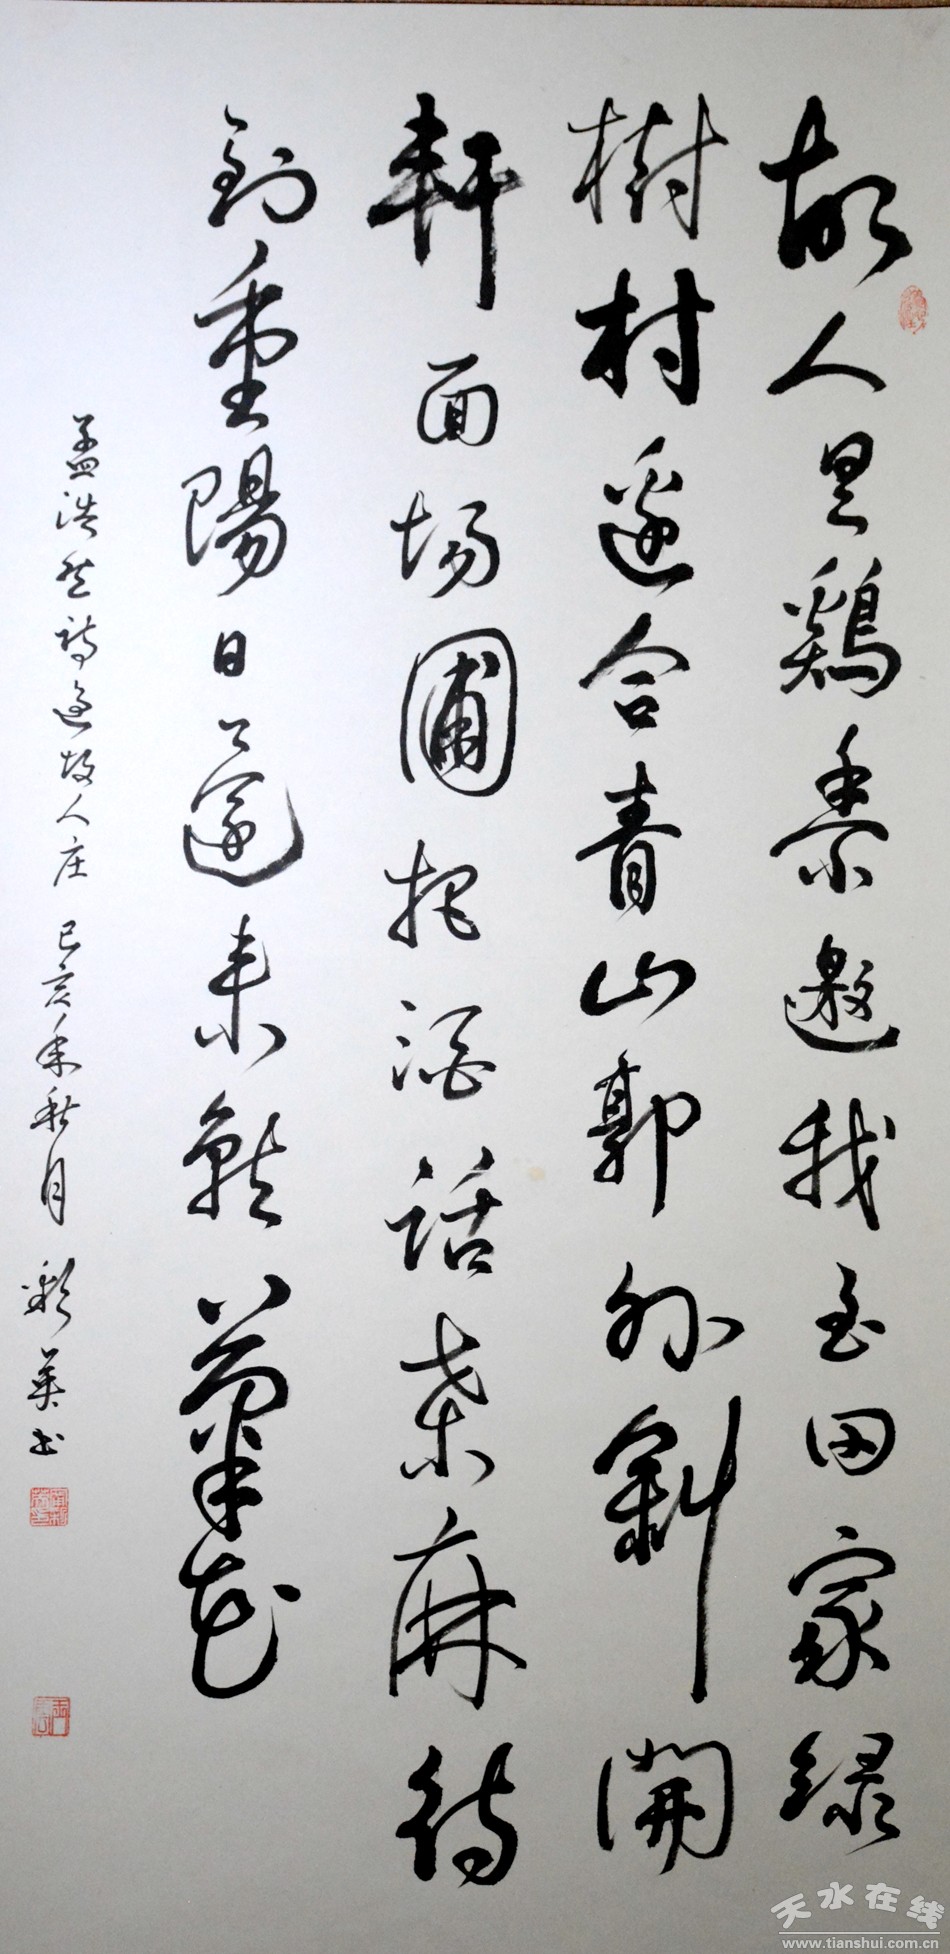 故人具鷄黍邀我至田家録
樹村邊合青山郭外斜開
軒面場圃把酒話桑麻待
到重陽日還来就菊花
孟浩然詩過故人庄 己亥年秋月 彩英书
天水在线
www.tianshui.com.cn